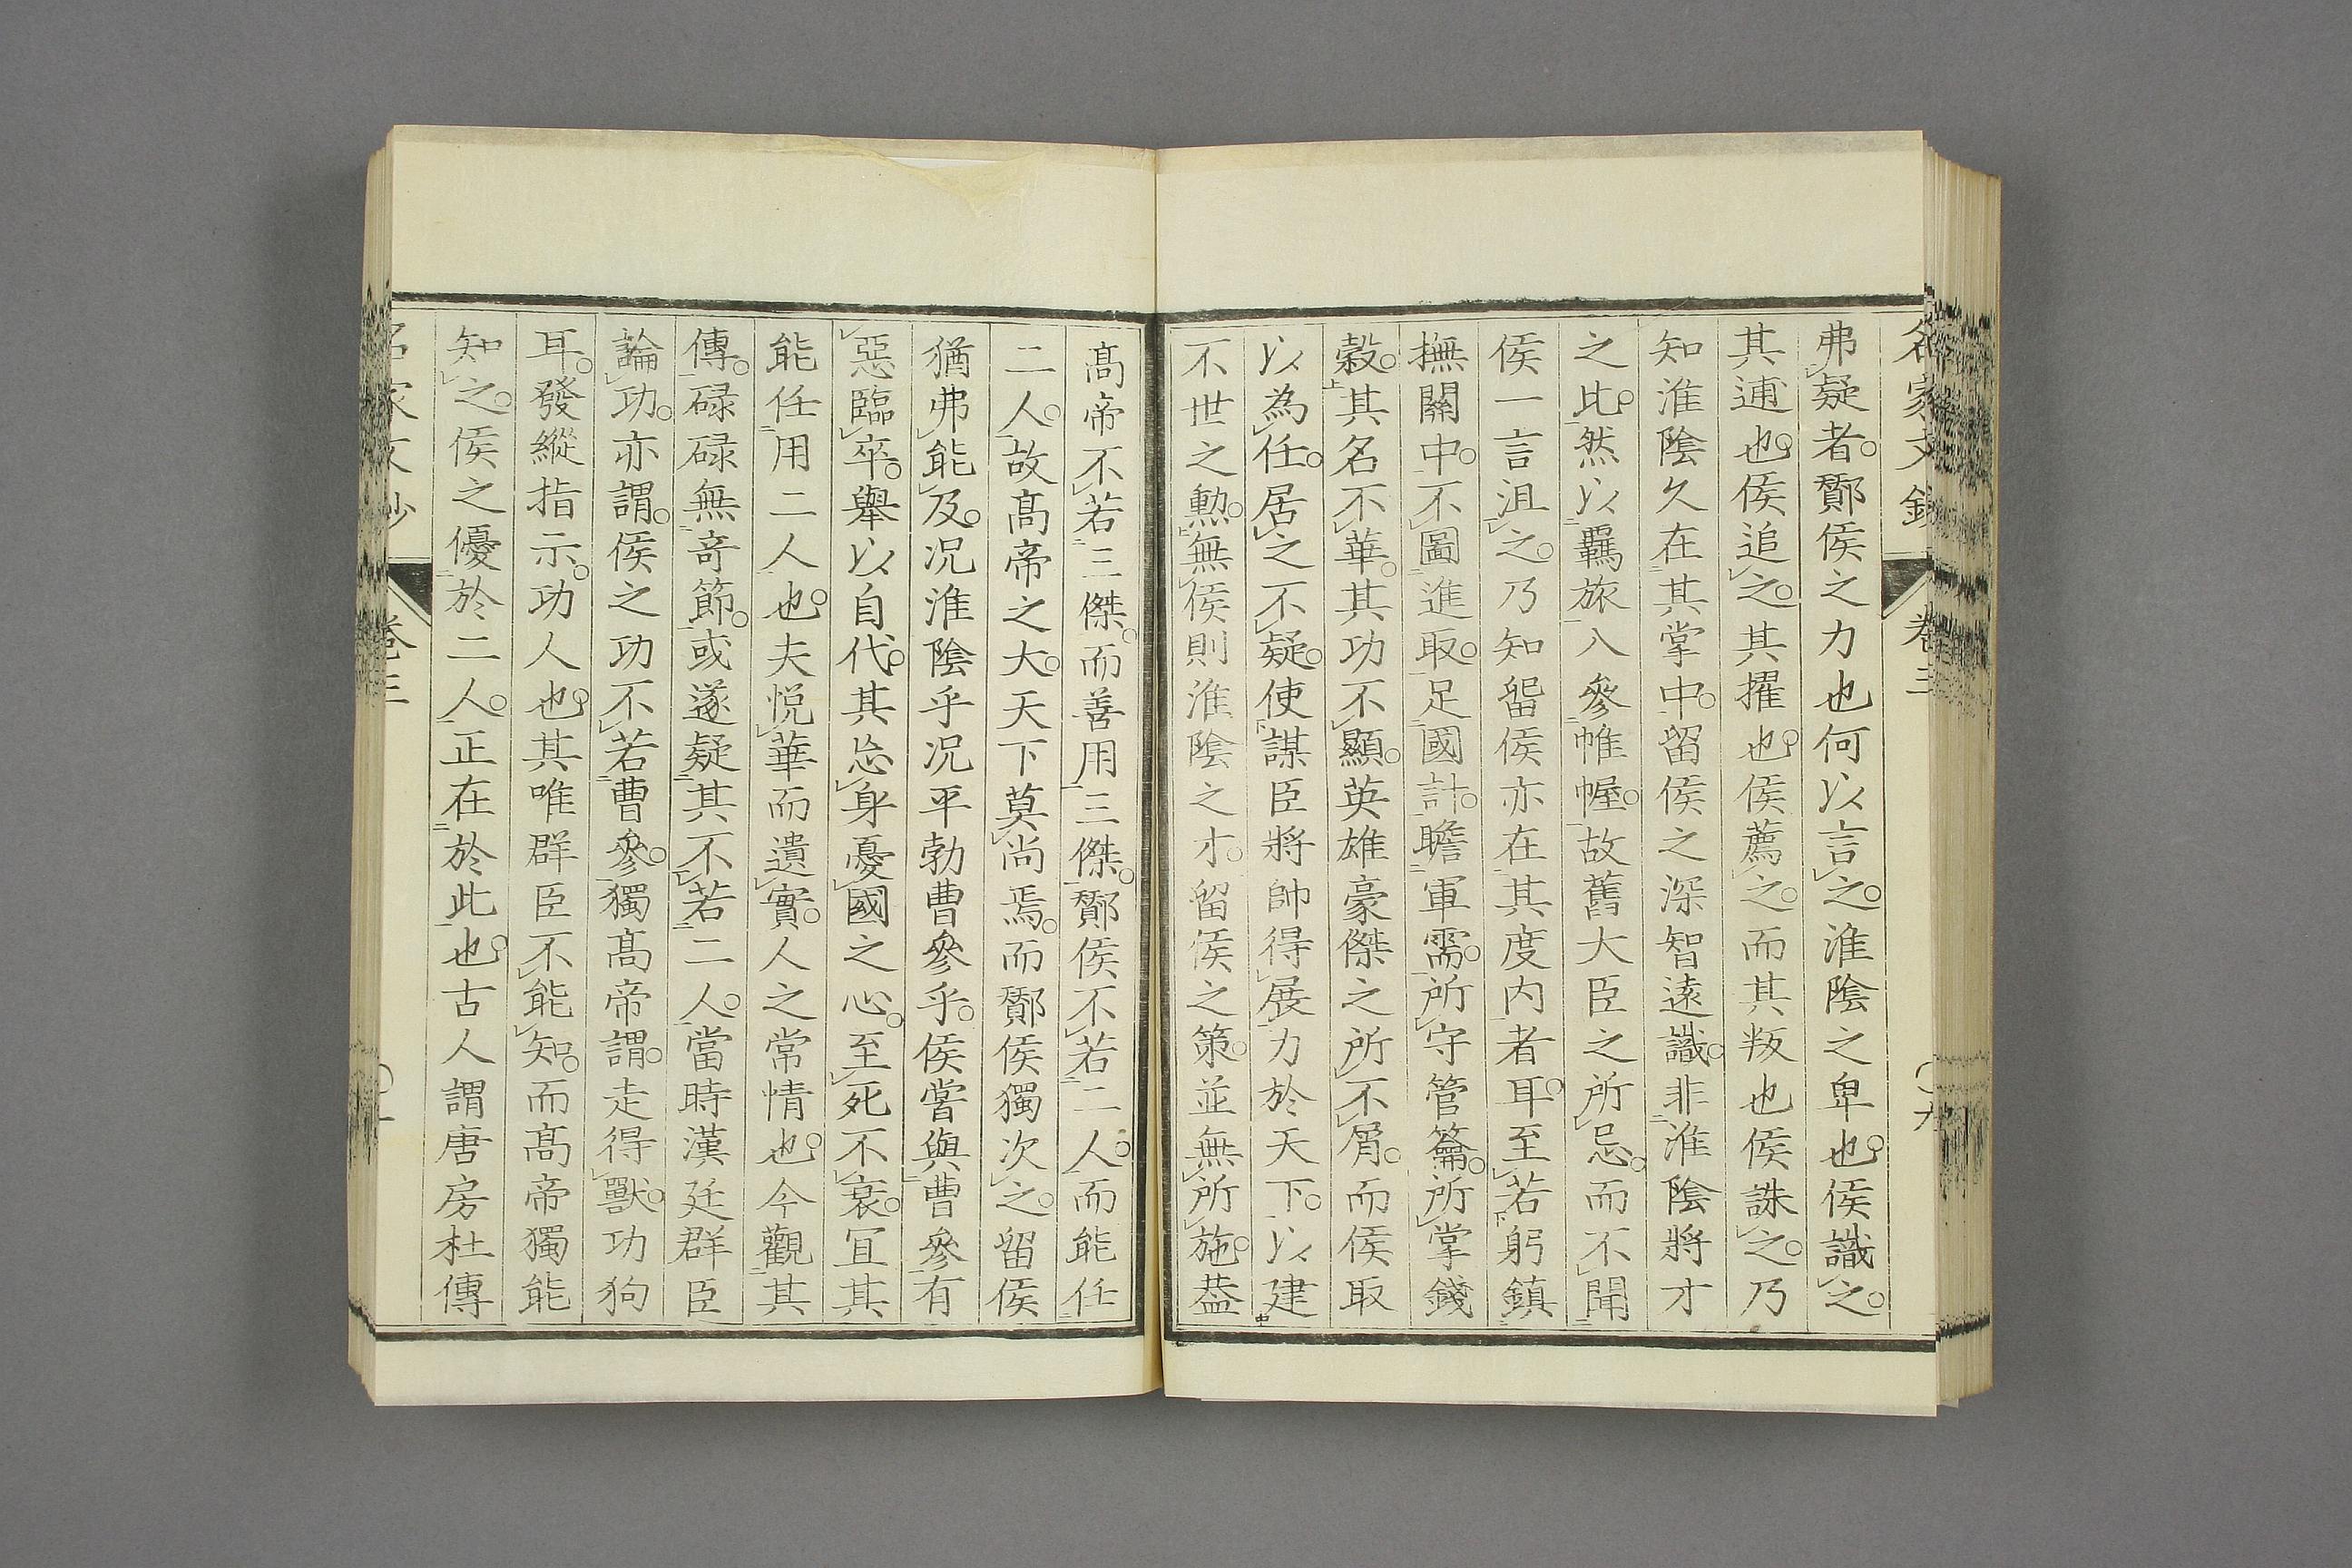 名家文鈔 卷三
弗疑者。酇侯之力也何以言之。淮陰之卑也。侯識之。
其逋也。侯追之。其擢也。侯薦之。而其叛也侯誅之。乃
知淮陰久在其掌中。留侯之深智遠識。非淮陰將才
之比。然以羈旅入參帷幄。故舊大臣之所忌。而不聞
侯一言沮之。乃知留侯亦在其度内者耳。至若躬鎮
撫關中。不圖進取。足國計。瞻軍需。所守管籥。所掌錢
穀。其名不華。其功不顯。英雄豪傑之所不屑。而侯取
以為任。居之不疑。使謀臣將帥得展力於天下。以建
不世之勲。無侯則淮陰之才。留侯之策。並無所施。葢
高帝不若三傑。而善用三傑。酇侯不若二人。而能任
二人。故高帝之大。天下莫尚焉。而酇侯獨次之。留侯
猶弗能及。况淮陰乎况平勃曹參乎。侯嘗與曹參有
惡臨卒。舉以自代。其忘身憂國之心。至死不衰。宜其
能任用二人也。夫悦華而遺實。人之常情也。今觀其
傳。碌碌無奇節。或遂疑其不若二人。當時漢廷群臣
論功。亦謂。侯之功不若曹參。獨高帝謂。走得獸。功狗
耳。發縱指示。功人也。其唯群臣不能知。而高帝獨能
知之。侯之優於二人。正在於此也。古人謂唐房杜傳
名家文鈔 卷三